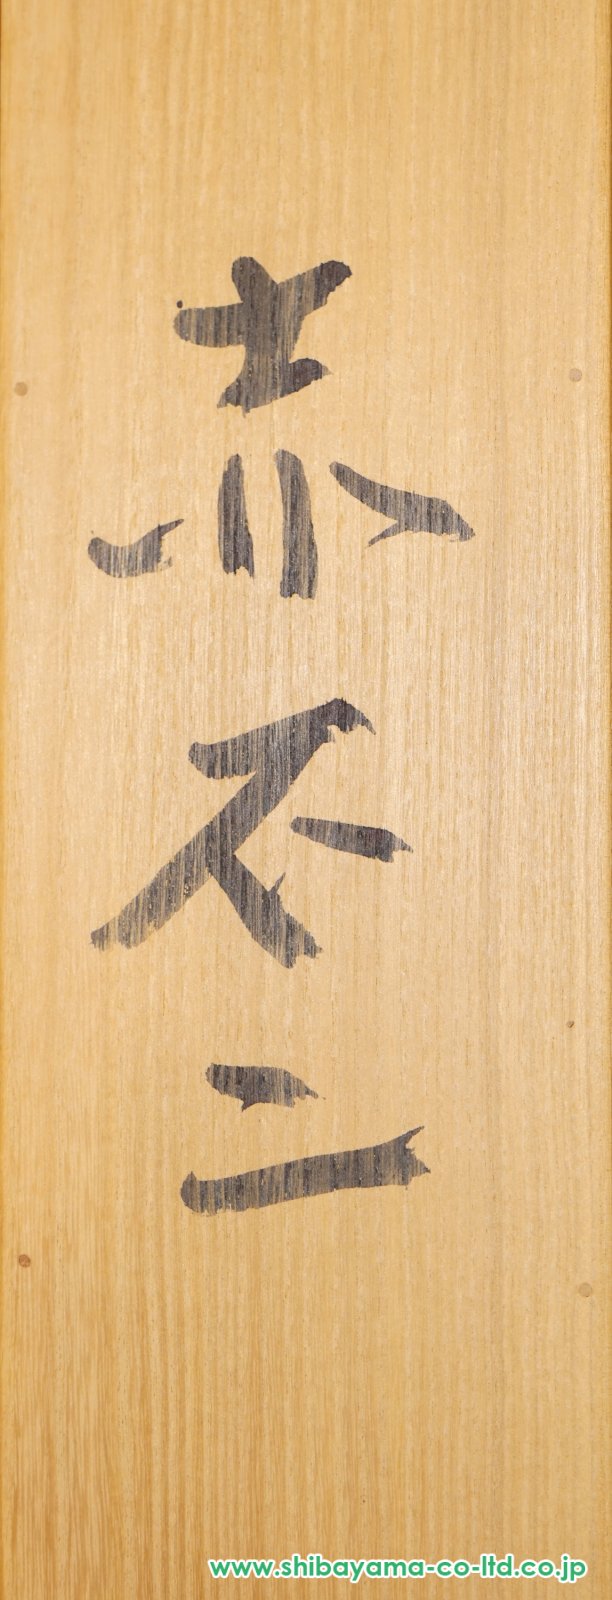 赤不二
www.shibayama-co-ltd.co.jp